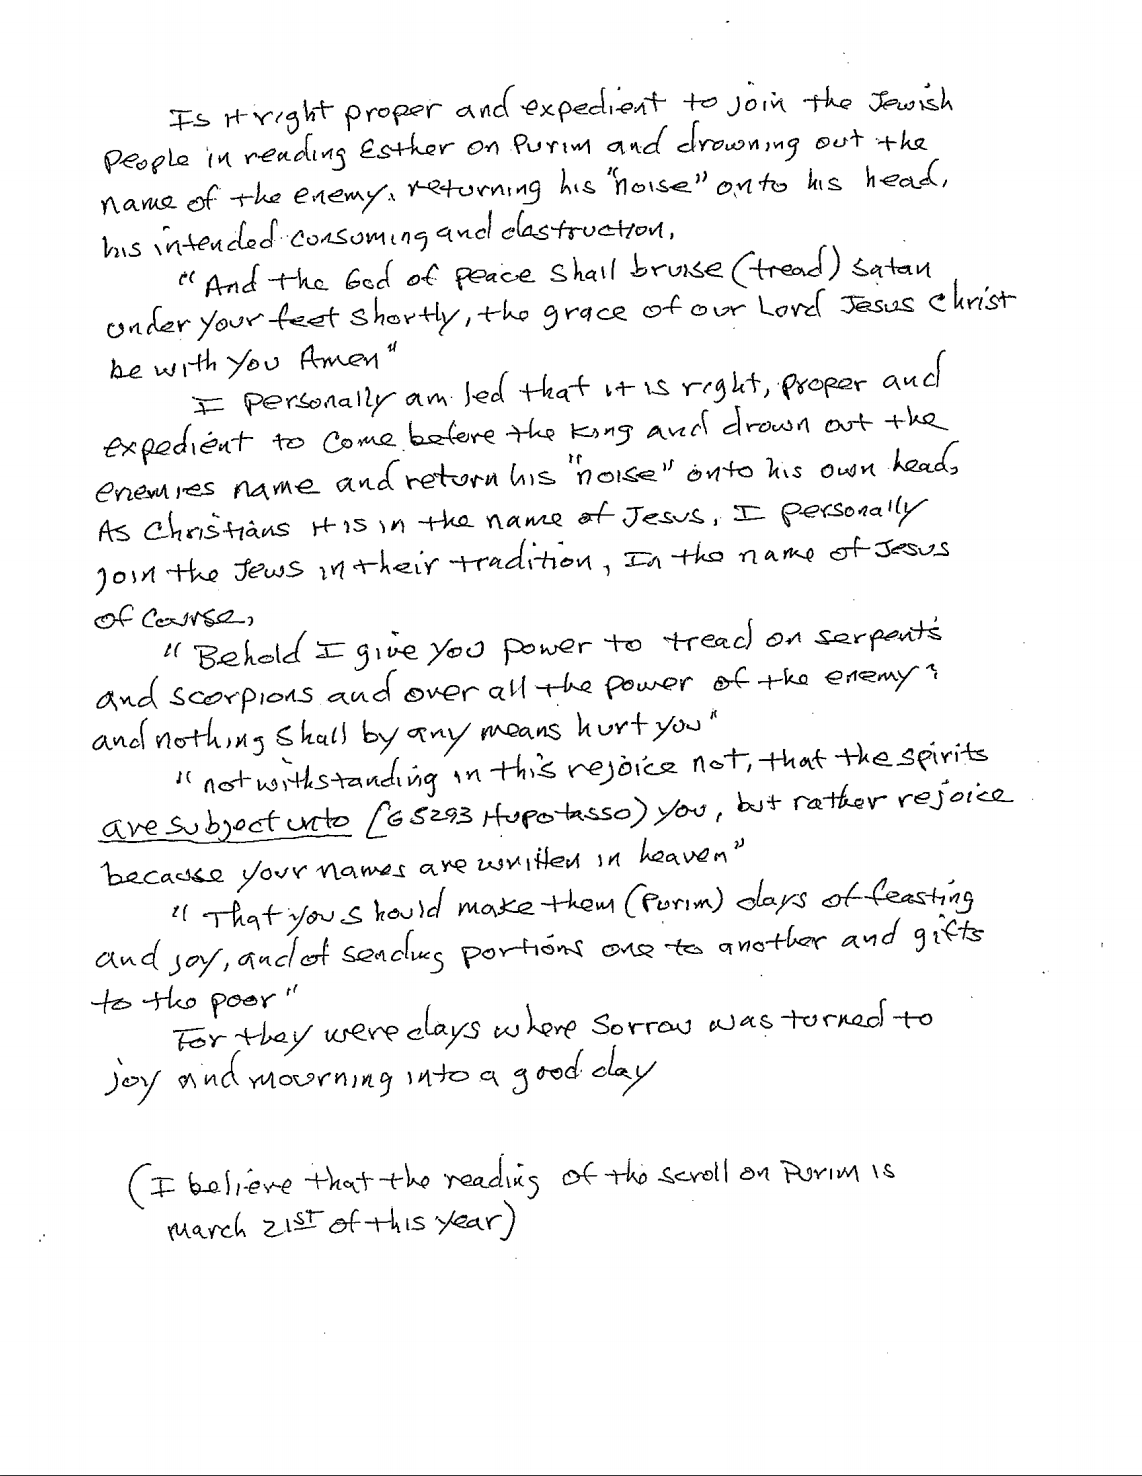 Is it right proper and expedient to join the Jewish
People in reading Esther on Purim and drowning out the
name of the enemy. returning his "noise" onto his head,
his intended consuming and dastruction,
"And the God of peace shall bruise (tread) satan
under your feet shortly, the grace of our Lord Jesus Christ
be with you Amen"
I personally am led that it is right, proper and
expedient to come before the King and drown out the
enemies name and return his "noise" onto his own head,
As Christians it is in the name of Jesus, I personally
join the Jews in their tradition, In the name of Jesus
of course,
"Behold I give you power to tread on serpents
and scorpions and over all the power of the enemy;
and nothing shall by any means hurt you"
"not withstanding in this rejoice not, that the spirits
are subject unto (G5293 Hupotasso) you, but rather rejoice
because your names are written in heaven"
"That you should make them (Purim) days of feasting
and joy, and of sending portions one to another and gifts
to the poor"
For they were days where sorrow was turned to
joy and mourning into a good day
(I believe that the reading of the scroll on Purim is
march 21ST of this year)